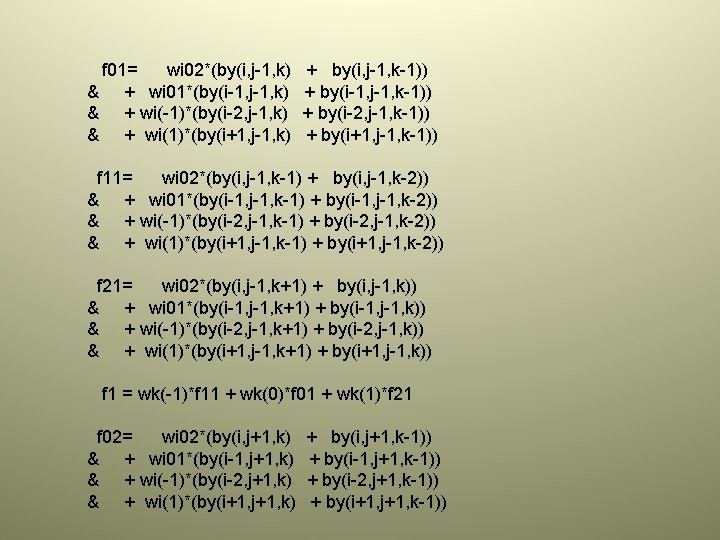 f01= wi02*(by(i,j-1,k) + by(i,j-1,k-1))
& + wi01*(by(i-1,j-1,k) + by(i-1,j-1,k-1))
& + wi(-1)*(by(i-2,j-1,k) + by(i-2,j-1,k-1))
& + wi(1)*(by(i+1,j-1,k) + by(i+1,j-1,k-1))
f11= wi02*(by(i,j-1,k-1) + by(i,j-1,k-2))
& + wi01*(by(i-1,j-1,k-1) + by(i-1,j-1,k-2))
& + wi(-1)*(by(i-2,j-1,k-1) + by(i-2,j-1,k-2))
& + wi(1)*(by(i+1,j-1,k-1) + by(i+1,j-1,k-2))
f21= wi02*(by(i,j-1,k+1) + by(i,j-1,k))
& + wi01*(by(i-1,j-1,k+1) + by(i-1,j-1,k))
& + wi(-1)*(by(i-2,j-1,k+1) + by(i-2,j-1,k))
& + wi(1)*(by(i+1,j-1,k+1) + by(i+1,j-1,k))
f1 = wk(-1)*f11 + wk(0)*f01 + wk(1)*f21
f02= wi02*(by(i,j+1,k) + by(i,j+1,k-1))
& + wi01*(by(i-1,j+1,k) + by(i-1,j+1,k-1))
& + wi(-1)*(by(i-2,j+1,k) + by(i-2,j+1,k-1))
& + wi(1)*(by(i+1,j+1,k) + by(i+1,j+1,k-1))